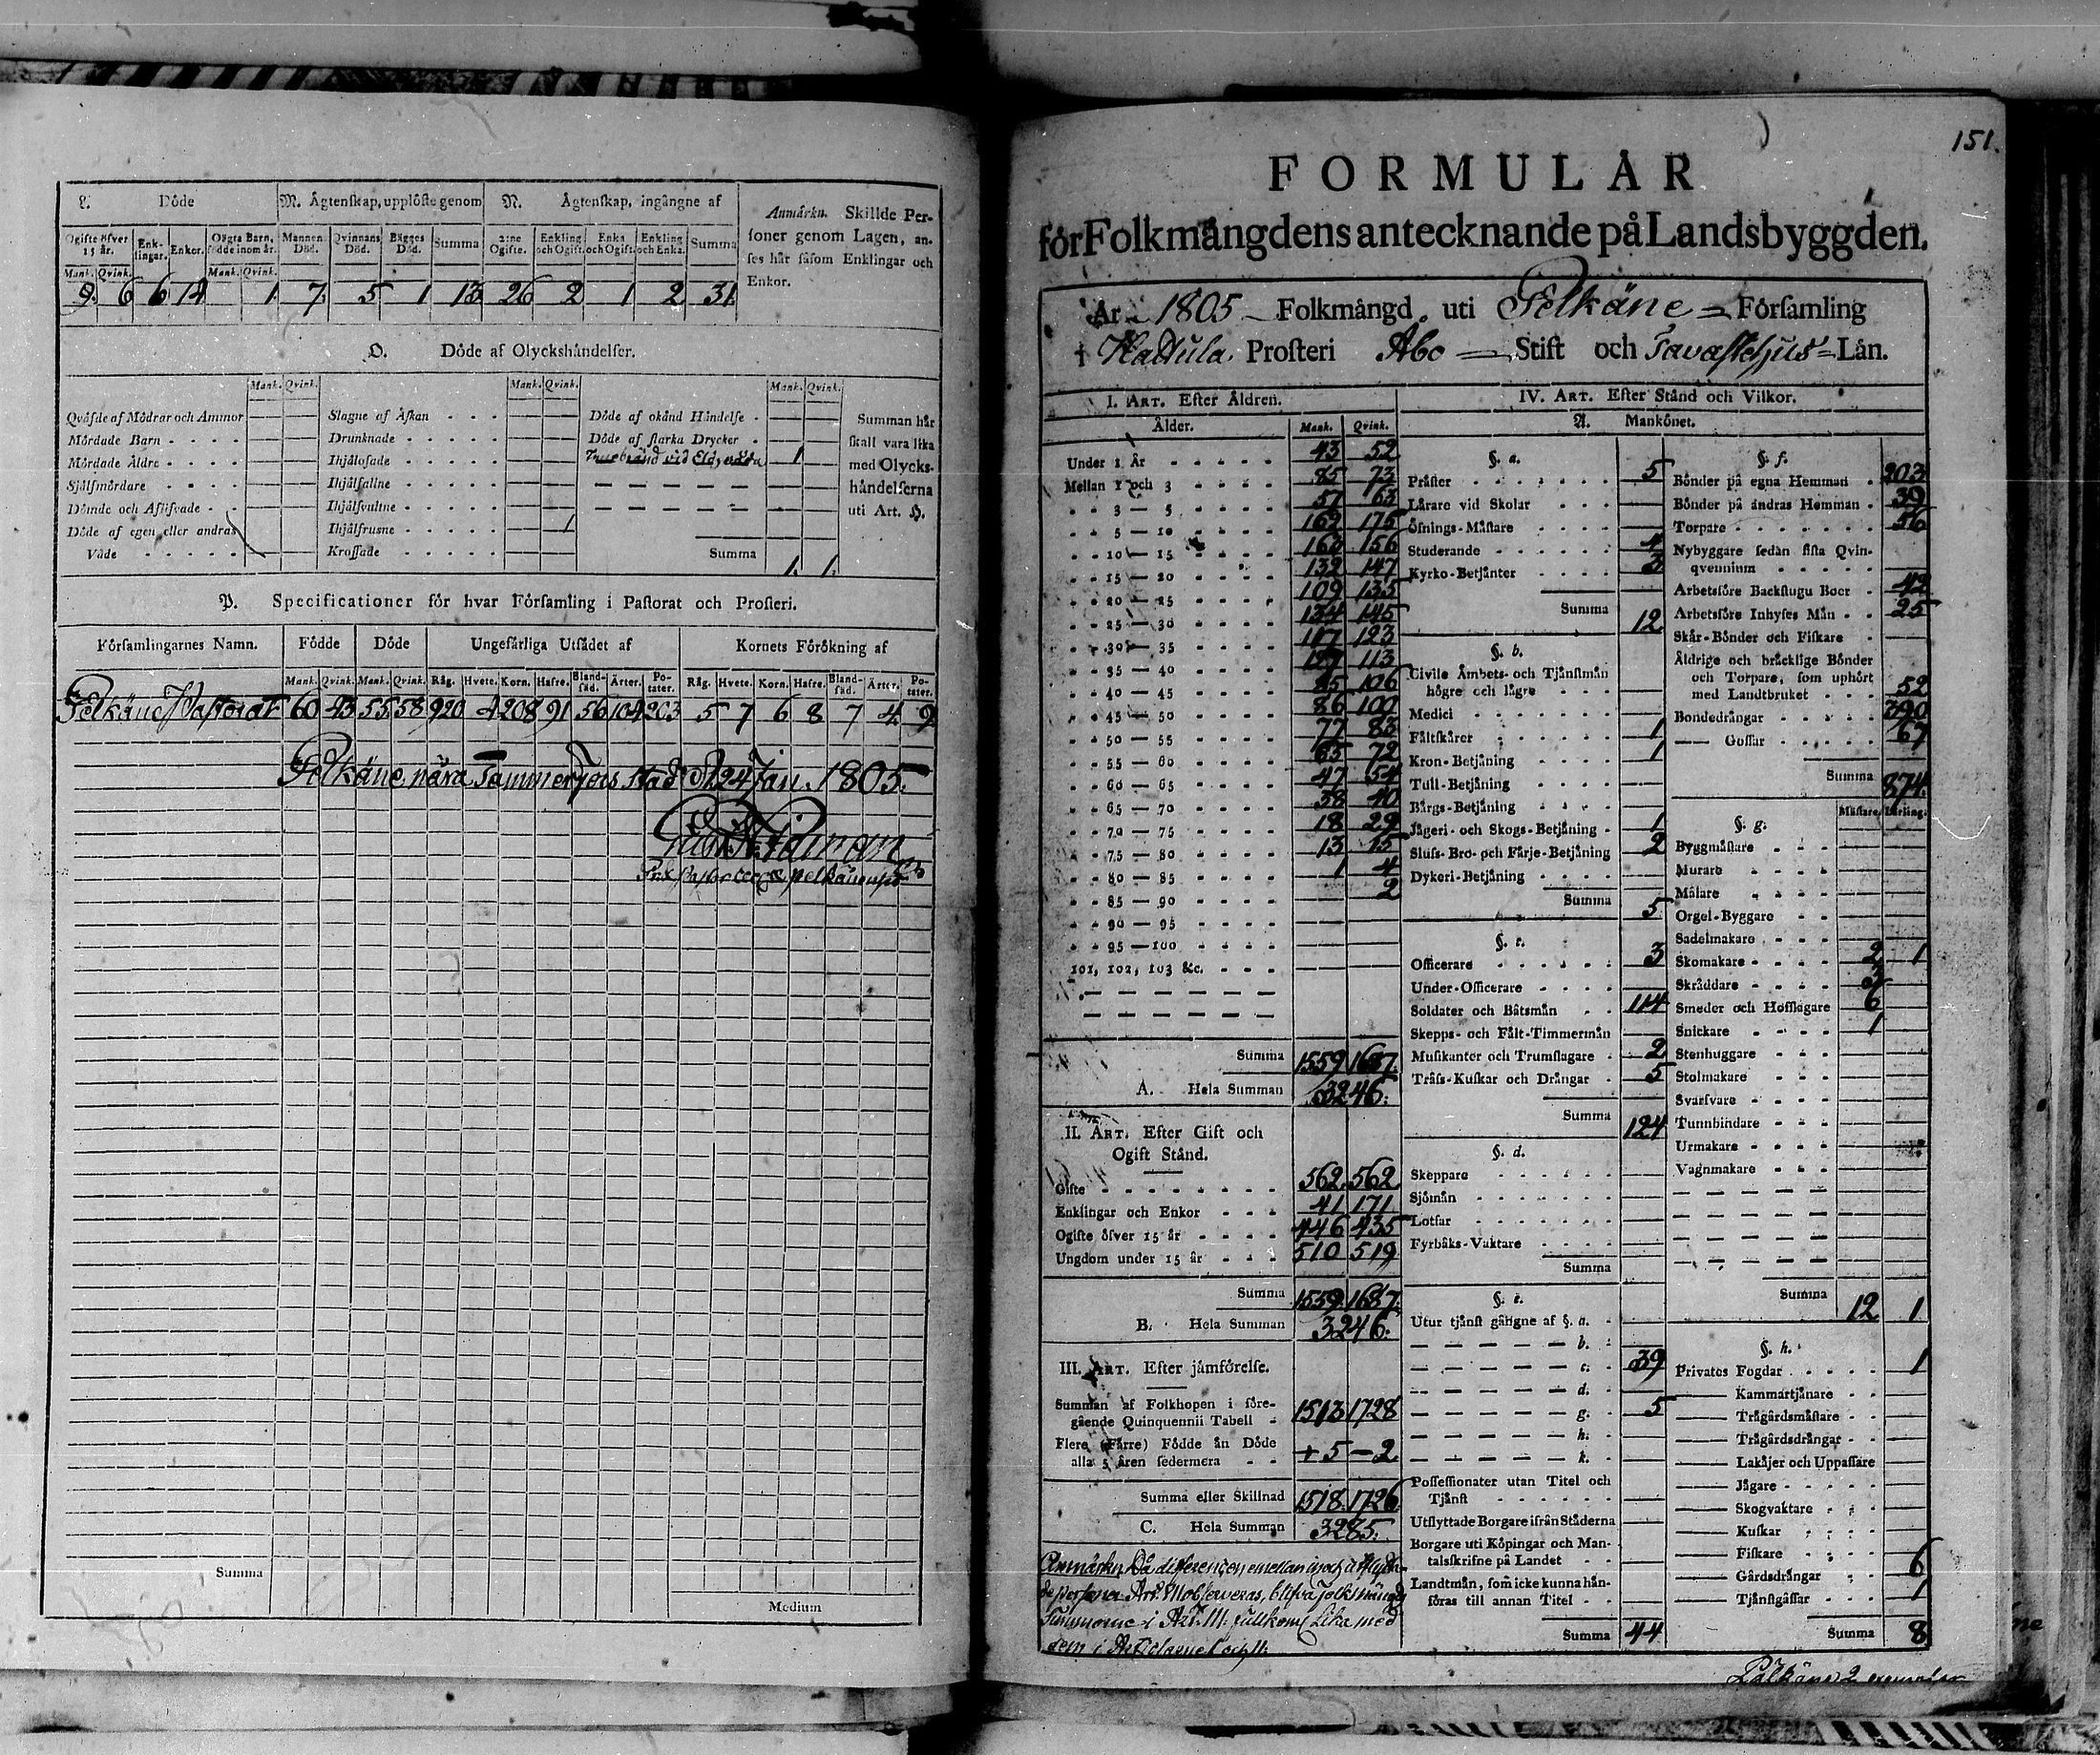 L. Döde
M. Ägtenskap, upplöste genom
N. Ägtenskap, ingångne af
Anmärkn. Skillde Per-
soner genom Lagen, an-
ses här såsom Enklingar och
Enkor.
Ogifte öfver 15 år. Enk-lingar. Enkor. Oägta Barn, födde inom år. Mannens Död. Qvinnans Död. Bägges Död. Summa 2:ne Ogifte. Enkling och Ogift. Enka och Ogift. Enkling och Enka. Summa
Mank. Qvink. Mank. Qvink.
9. 6 6 14 1. 7. 5 1 13 26 2 1 2 31.
O. Döde af Olyckshändelser.
Mank. Qvink. Mank. Qvink. Mank. Qvink.
Qväfde af Mödrar och Ammor
Mördade Barn
Mördade Äldre
Självmördare
Dömde och Aflifvade
Döde af egen eller andras
Våde
Slagne af Åskan
Drunknade
Ihjälosade
Ihjälfallne
Ihjälsvultne
Ihjälfrusne 1
Krossade
Döde af okänd Händelse
Döde af starka Drycker
Innebränd vid Eldsvåda 1
Summa 1. 1.
Summan här
skall vara lika
med Olycks-
händelserna
uti Art. H.
P. Specificationer för hvar Församling i Pastorat och Prosteri.
Församlingarnes Namn. Födde Döde Ungefärliga Utsädet af Kornets Förökning af
Mank. Qvink. Mank. Qvink. Råg. Hvete. Korn. Hafre. Bland-säd. Ärter. Po-tater. Råg. Hvete. Korn. Hafre. Bland-säd. Ärter. Po-tater.
Pelkäne Pastorat 60 43 55 58 920 4 208 91 56 104 203 5 7 6 8 7 4. 9
Pelkäne nära Tammerfors stad d. 24 Jan. 1805.
Summa
Medium
151.
FORMULÄR
för Folkmängdens antecknande på Landsbyggden.
År 1805 Folkmängd uti Pelkäne Församling
i Hattula Prosteri Åbo Stift och Tavastehus Län.
I. ART. Efter Åldren.
Ålder. Mank. Qvink.
Under 1 År 43 52
Mellan 1 och 3 85 73
3 — 5 57 63
5 — 10 162 175
10 — 15 163 156
15 — 20 132 147
20 — 25 109 135
25 — 30 134 145
30 — 35 117 123
35 — 40 127 113
40 — 45 85 106
45 — 50 86 100
50 — 55 77 83
55 — 60 65 72
60 — 65 47 54
65 — 70 38 40
70 — 75 18 29
75 — 80 13 15
80 — 85 1 4
85 — 90 2
90 — 95
95 — 100
101, 102, 103 &c.
Summa 1559 1687.
A. Hela Summan 3246.
II. ART. Efter Gift och
Ogift Stånd.
Gifte 562 562
Enklingar och Enkor 41 171
Ogifte öfver 15 år 446 435
Ungdom under 15 år 510 519
Summa 1559. 1687.
B. Hela Summan 3246.
III. ART. Efter jämförelse.
Summan af Folkhopen i före-
gående Quinquennii Tabell 1513 1728
Flere (Färre) Födde än Döde
alla 5 åren sedermera + 5 — 2
Summa eller Skillnad 1518. 1726
C. Hela Summan 3285.
Anmärkn. Då differencen emellan in och utflytta-
de personer observeras, blifva folkmängds
Summorne i Art. III. fullkoml. lika med
dem i
IV. ART. Efter Stånd och Vilkor.
A. Mankönet.
§. a.
Präster 5
Lärare vid Skolar
Öfnings-Mästare
Studerande 4
Kyrko-Betjänter 3
Summa 12
§. b.
Civile Ämbets- och Tjänstmän
högre och lägre
Medici
Fältskärer 1
Kron-Betjäning 1
Tull-Betjäning
Bärgs-Betjäning
Jägeri- och Skogs-Betjäning 1
Sluss- Bro- och Färje-Betjäning 2
Dykeri-Betjäning
Summa 5
§. c.
Officerare 3
Under-Officerare
Soldater och Båtsmän 114
Skepps- och Fält-Timmermän
Musikanter och Trumslagare 2
Träss-Kuskar och Drängar 5
Summa 124
§. d.
Skeppare
Sjömän
Lotsar
Fyrbåks-Vaktare
Summa
§. e.
Utur tjänst gångne af §. a.
b.
c. 39
d.
g. 5
h.
k.
Possessionater utan Titel och
Tjänst
Utflyttade Borgare ifrån Städerna
Borgare uti Köpingar och Man-
talsskrifne på Landet
Landtmän, som icke kunna hän-
föras till annan Titel
Summa 44
§. f.
Bönder på egna Hemman 203
Bönder på andras Hemman 39
Torpare 56
Nybyggare sedan sista Qvin-
qvennium
Arbetsföre Backstugu Boer 42
Arbetsföre Inhyses Män 25
Skär-Bönder och Fiskare
Äldrige och bräcklige Bönder
och Torpare, som uphört
med Landtbruket 52
Bondedrängar 390
— Gossar 67
Summa 874.
§. g. Mästare. Lärling.
Byggmästare
Murare
Målare
Orgel-Byggare
Sadelmakare
Skomakare 2 1
Skräddare 3
Smeder och Hofslagare 6
Snickare 1
Stenhuggare
Stolmakare
Svarfvare
Tunnbindare
Urmakare
Vagnmakare
Summa 12 1
§. h.
Privates Fogdar 1
— Kammartjänare
— Trägårdsmästare
— Trägårdsdrängar
— Lakäjer och Uppassare
— Jägare
— Skogvaktare
— Kuskar
— Fiskare
— Gårdsdrängar 6
— Tjänstgåssar 1
Summa 8